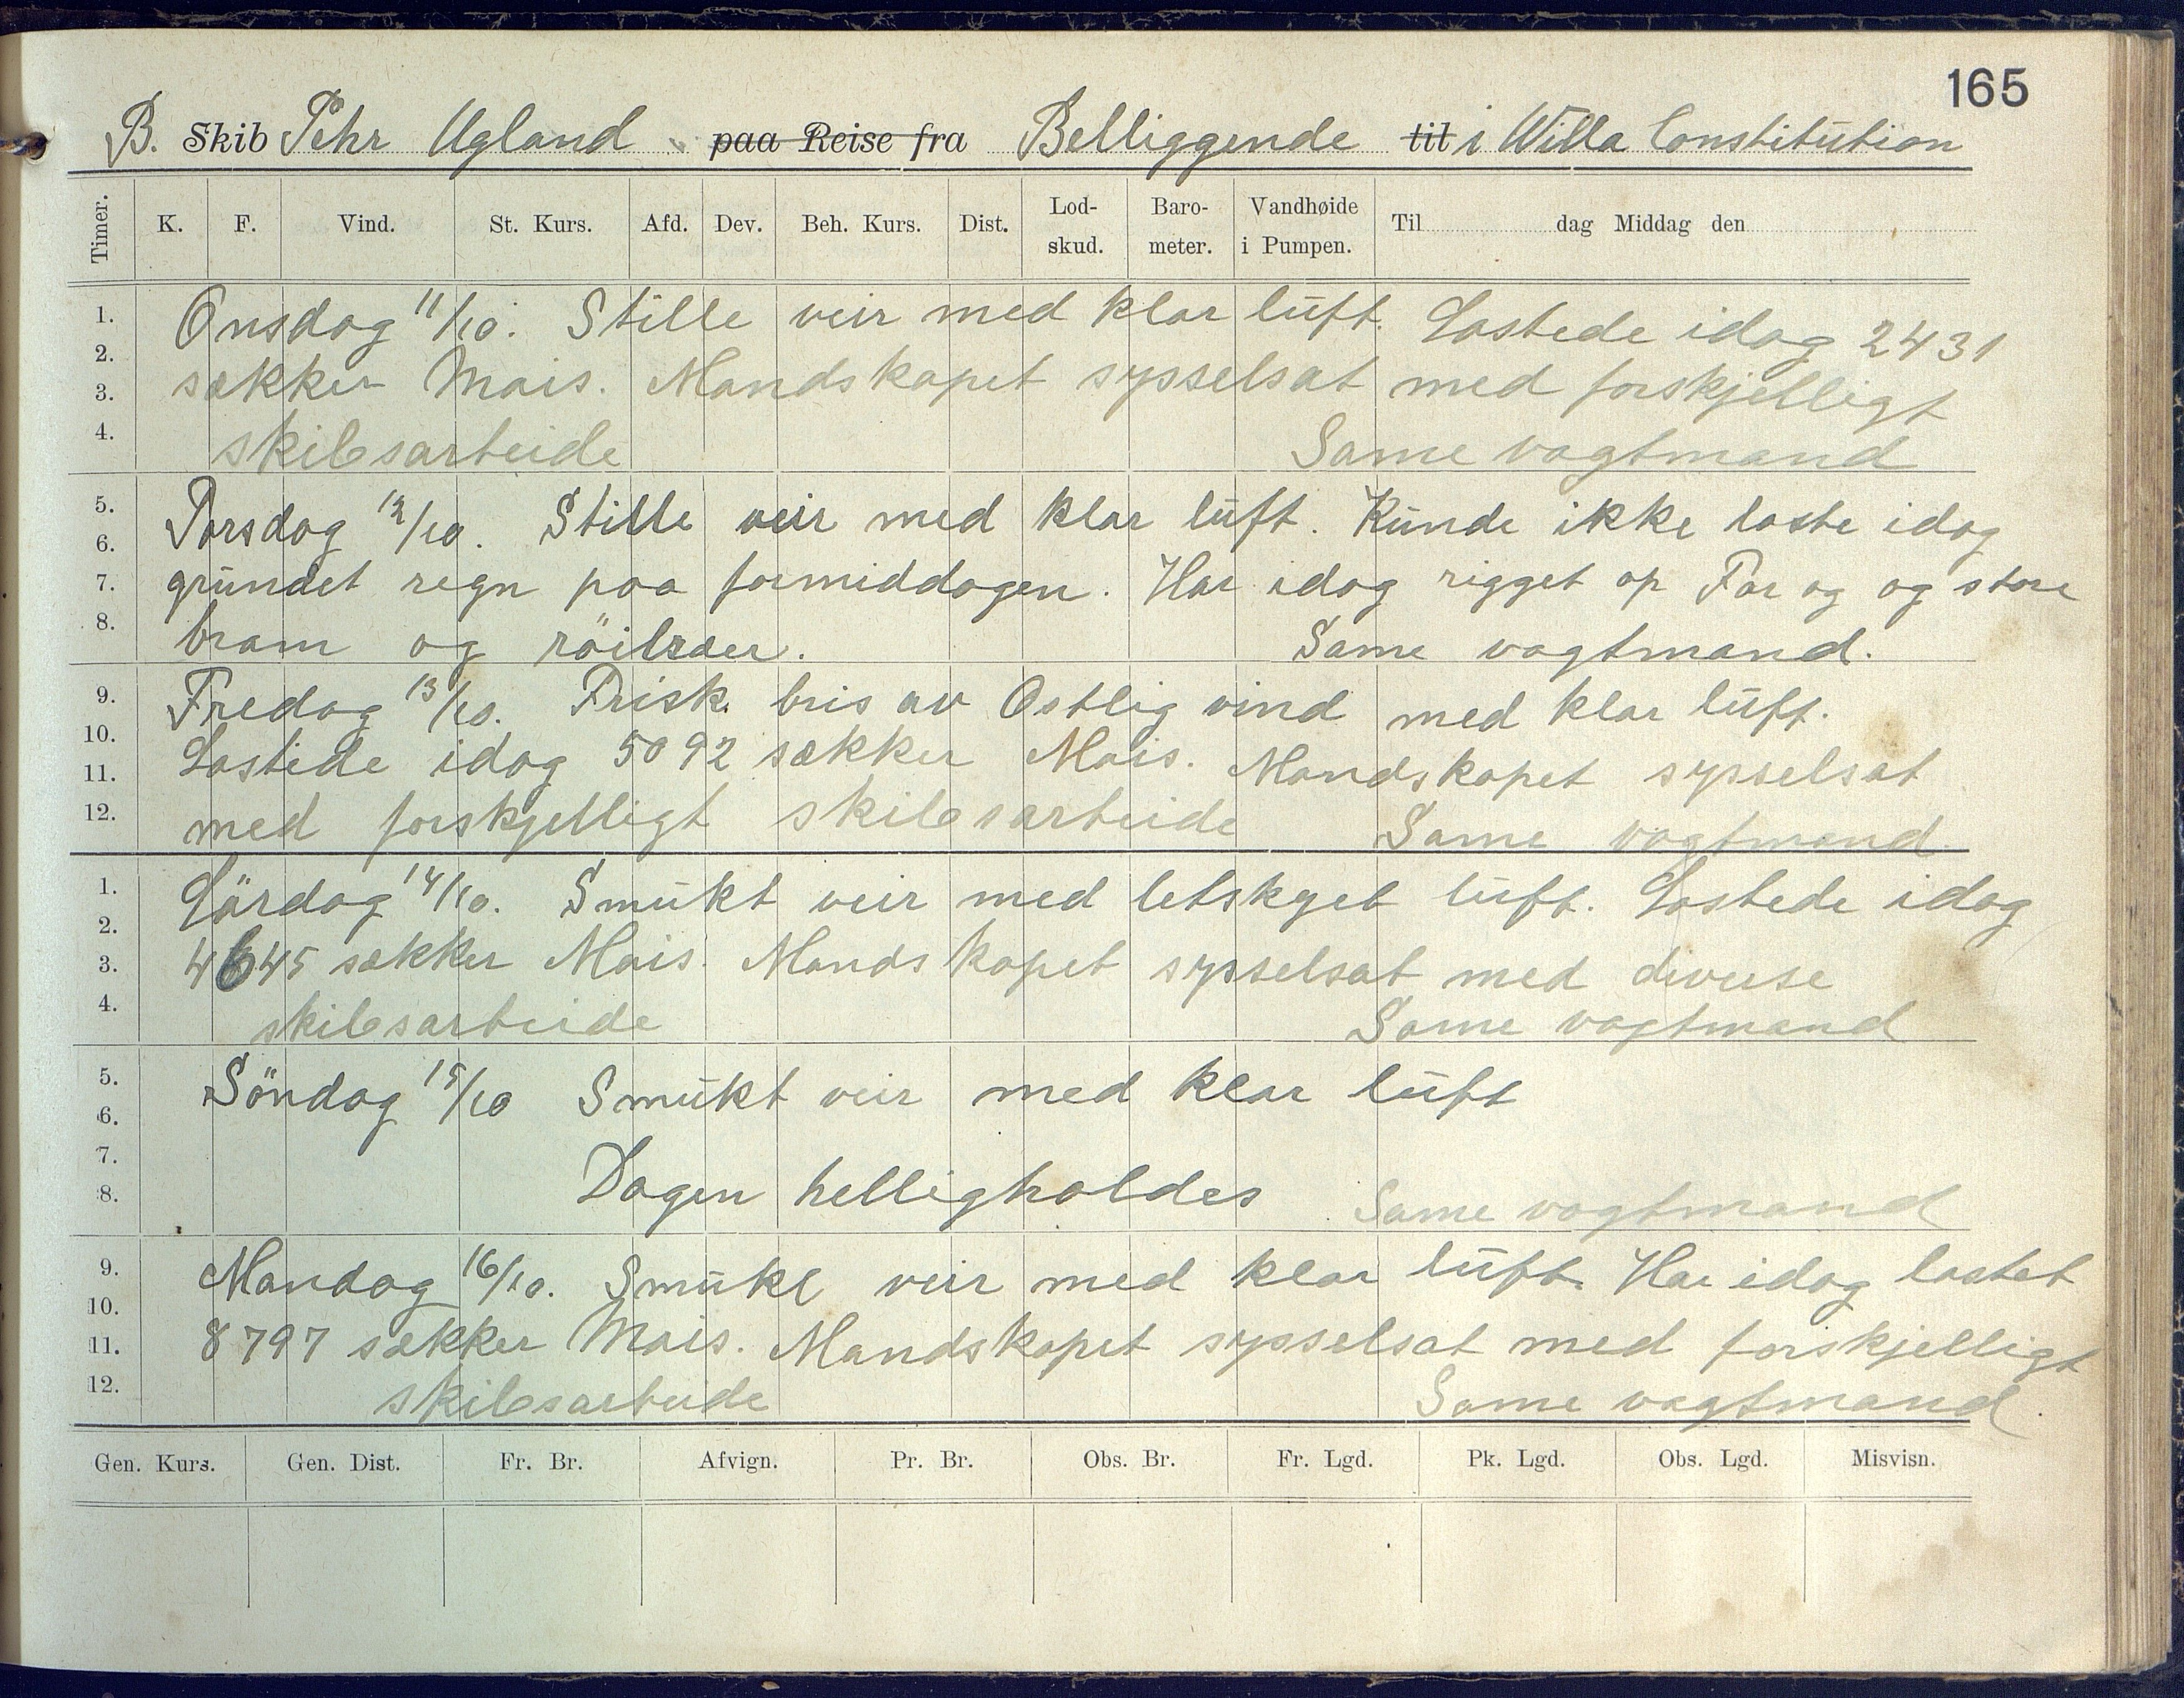 165
B. Skib Pehr Ugland paa Reise fra Belliggende til i Willa Constitution
Timer. K. F. Vind. St. Kurs. Afd. Dev. Beh. Kurs. Dist. Lod-skud. Baro-meter. Vandhøide i Pumpen. Til dag Middag den
1. Onsdag 11/10. Stille veir med klar luft. Lastede idag 2431
2. 3. sækker Mais. Mandskapet sysselsat med forskjelligt
4. skibsarbeide Same vagtmand
5. 6. Torsdag 12/10. Stille veir med klar luft. Kunde ikke laste idag
7. grundet regn paa formiddagen. Har idag rigget op For og og store
8. bram og röilræer. Same vagtmand.
9. Fredag 13/10. Frisk bris av Ostlig vind med klar luft.
10. 11. Lastede idag 5092 sækker Mais. Mandskapet sysselsat
12. med forskjelligt skibsarbeide Same vagtmand
1. 2. Lärdag 14/10. Smukt veir med letskyet luft. Lastede idag
3. 4645 sækker Mais. Mandskapet sysselsat med diverse
4. skibsarbeide Same vagtmand
5. 6. Söndag 15/10 Smukt veir med klar luft
7. 8. Dagen helligholdes Same vagtmand
9. 10. Mandag 16/10. Smukt veir med klar luft. Har idag lastet
11. 8797 sækker Mais. Mandskapet sysselsat med forskjelligt
12. skibsarbeide Same vagtmand.
Gen. Kurs. Gen. Dist. Fr. Br. Afvign. Pr. Br. Obs. Br. Fr. Lgd. Pk. Lgd. Obs. Lgd. Misvisn.